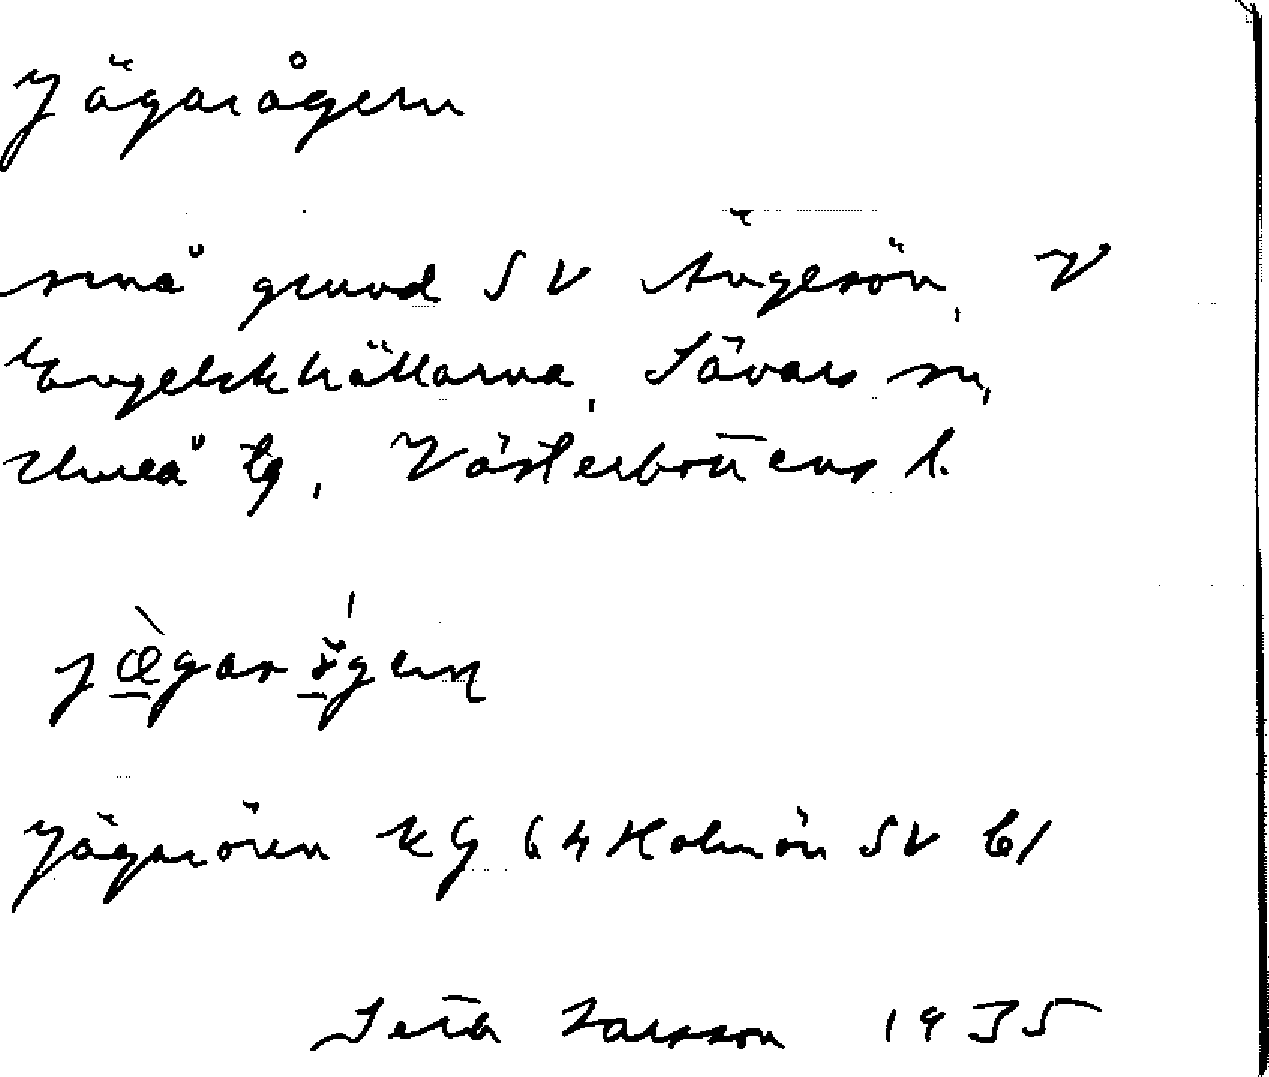 Jägarågern
små grund SV Ängesön, V
Engelskhällarna, Sävars sn,
Umeå tg, Västerbottens l.
Jägarören KG 64 Holmön SV b1
Larsson 1935